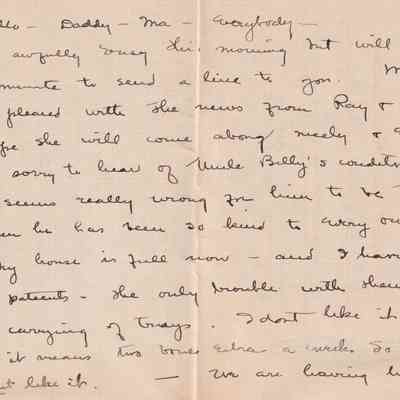 llo - Daddy - Ma - Everybody -
awfully busy this morning but will
minute to send a line to you.
pleased with the news from Ray &
she will come along nicely &
sorry to hear of Uncle Billy's condit
seems really wrong for him to be
he has been so kind to every
house is full now - and I hav
patients - The only trouble with them
carrying of trays. I dont like it
it means two extra a week. So
like it. - We are having